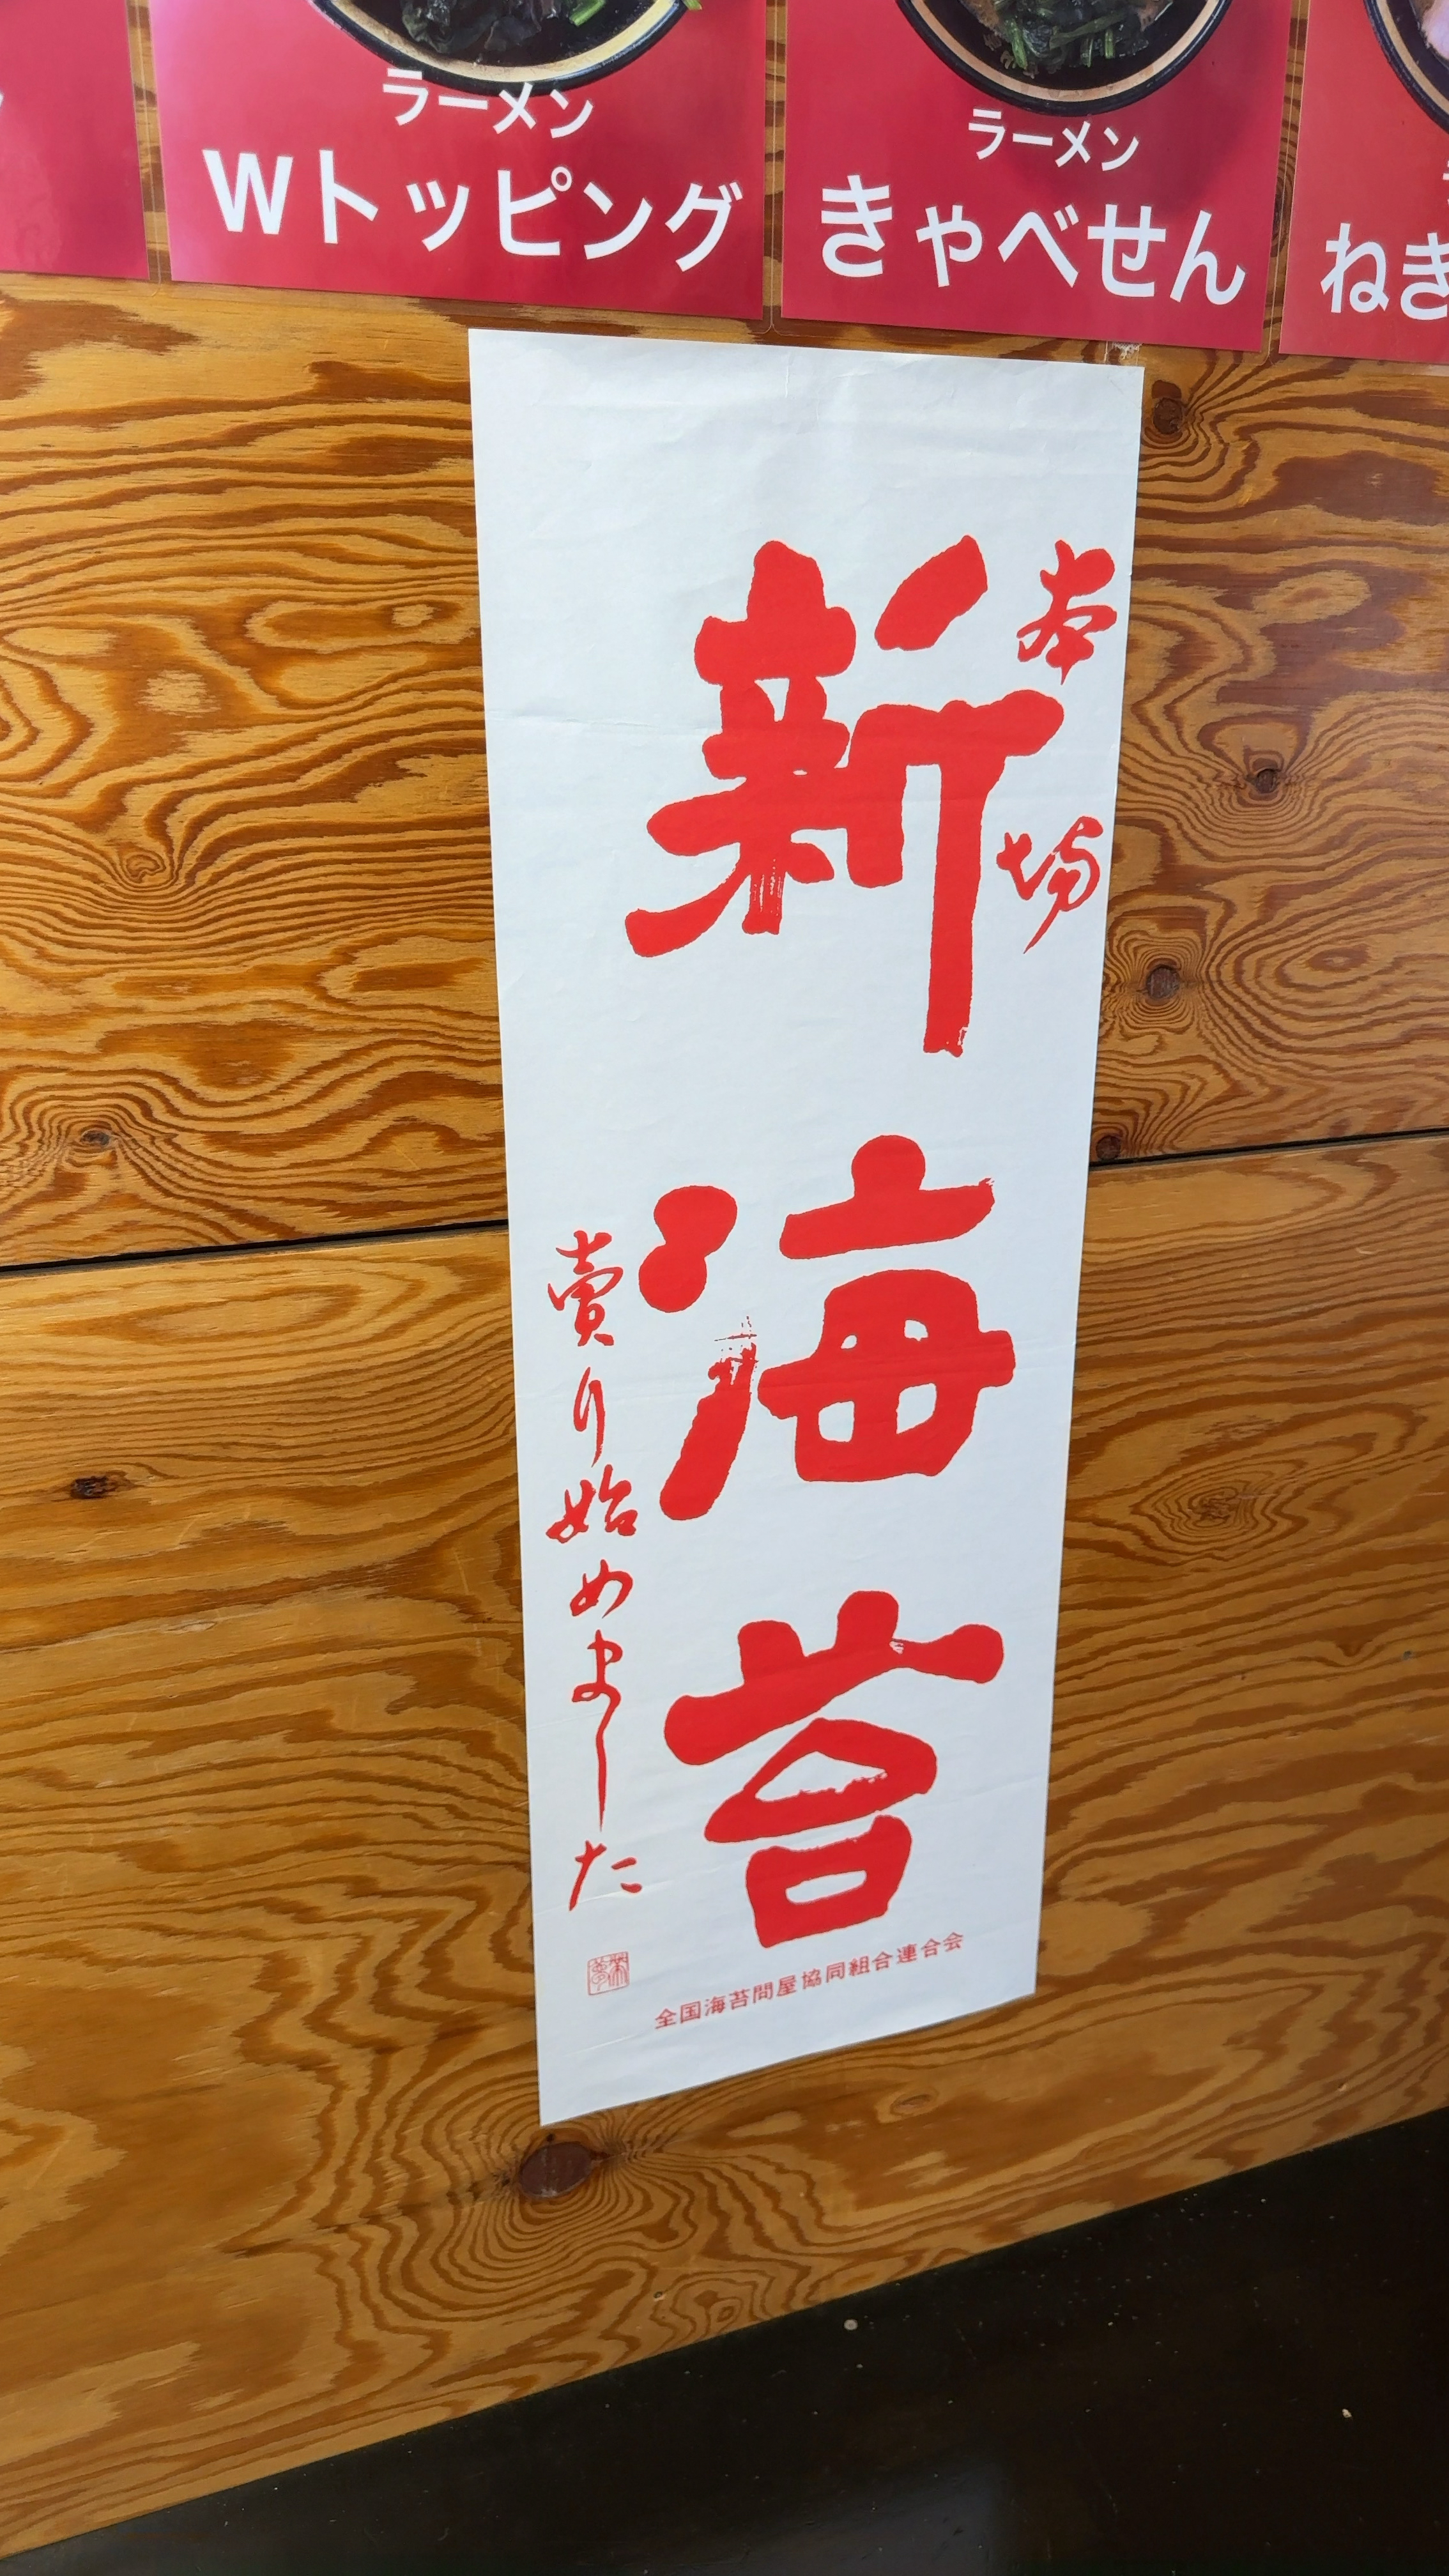 ラーメン
Wトッピング
ラーメン
きゃべせん
ねぎ
本場
新海苔
賣り始めました
全国海苔問屋協同組合連合会